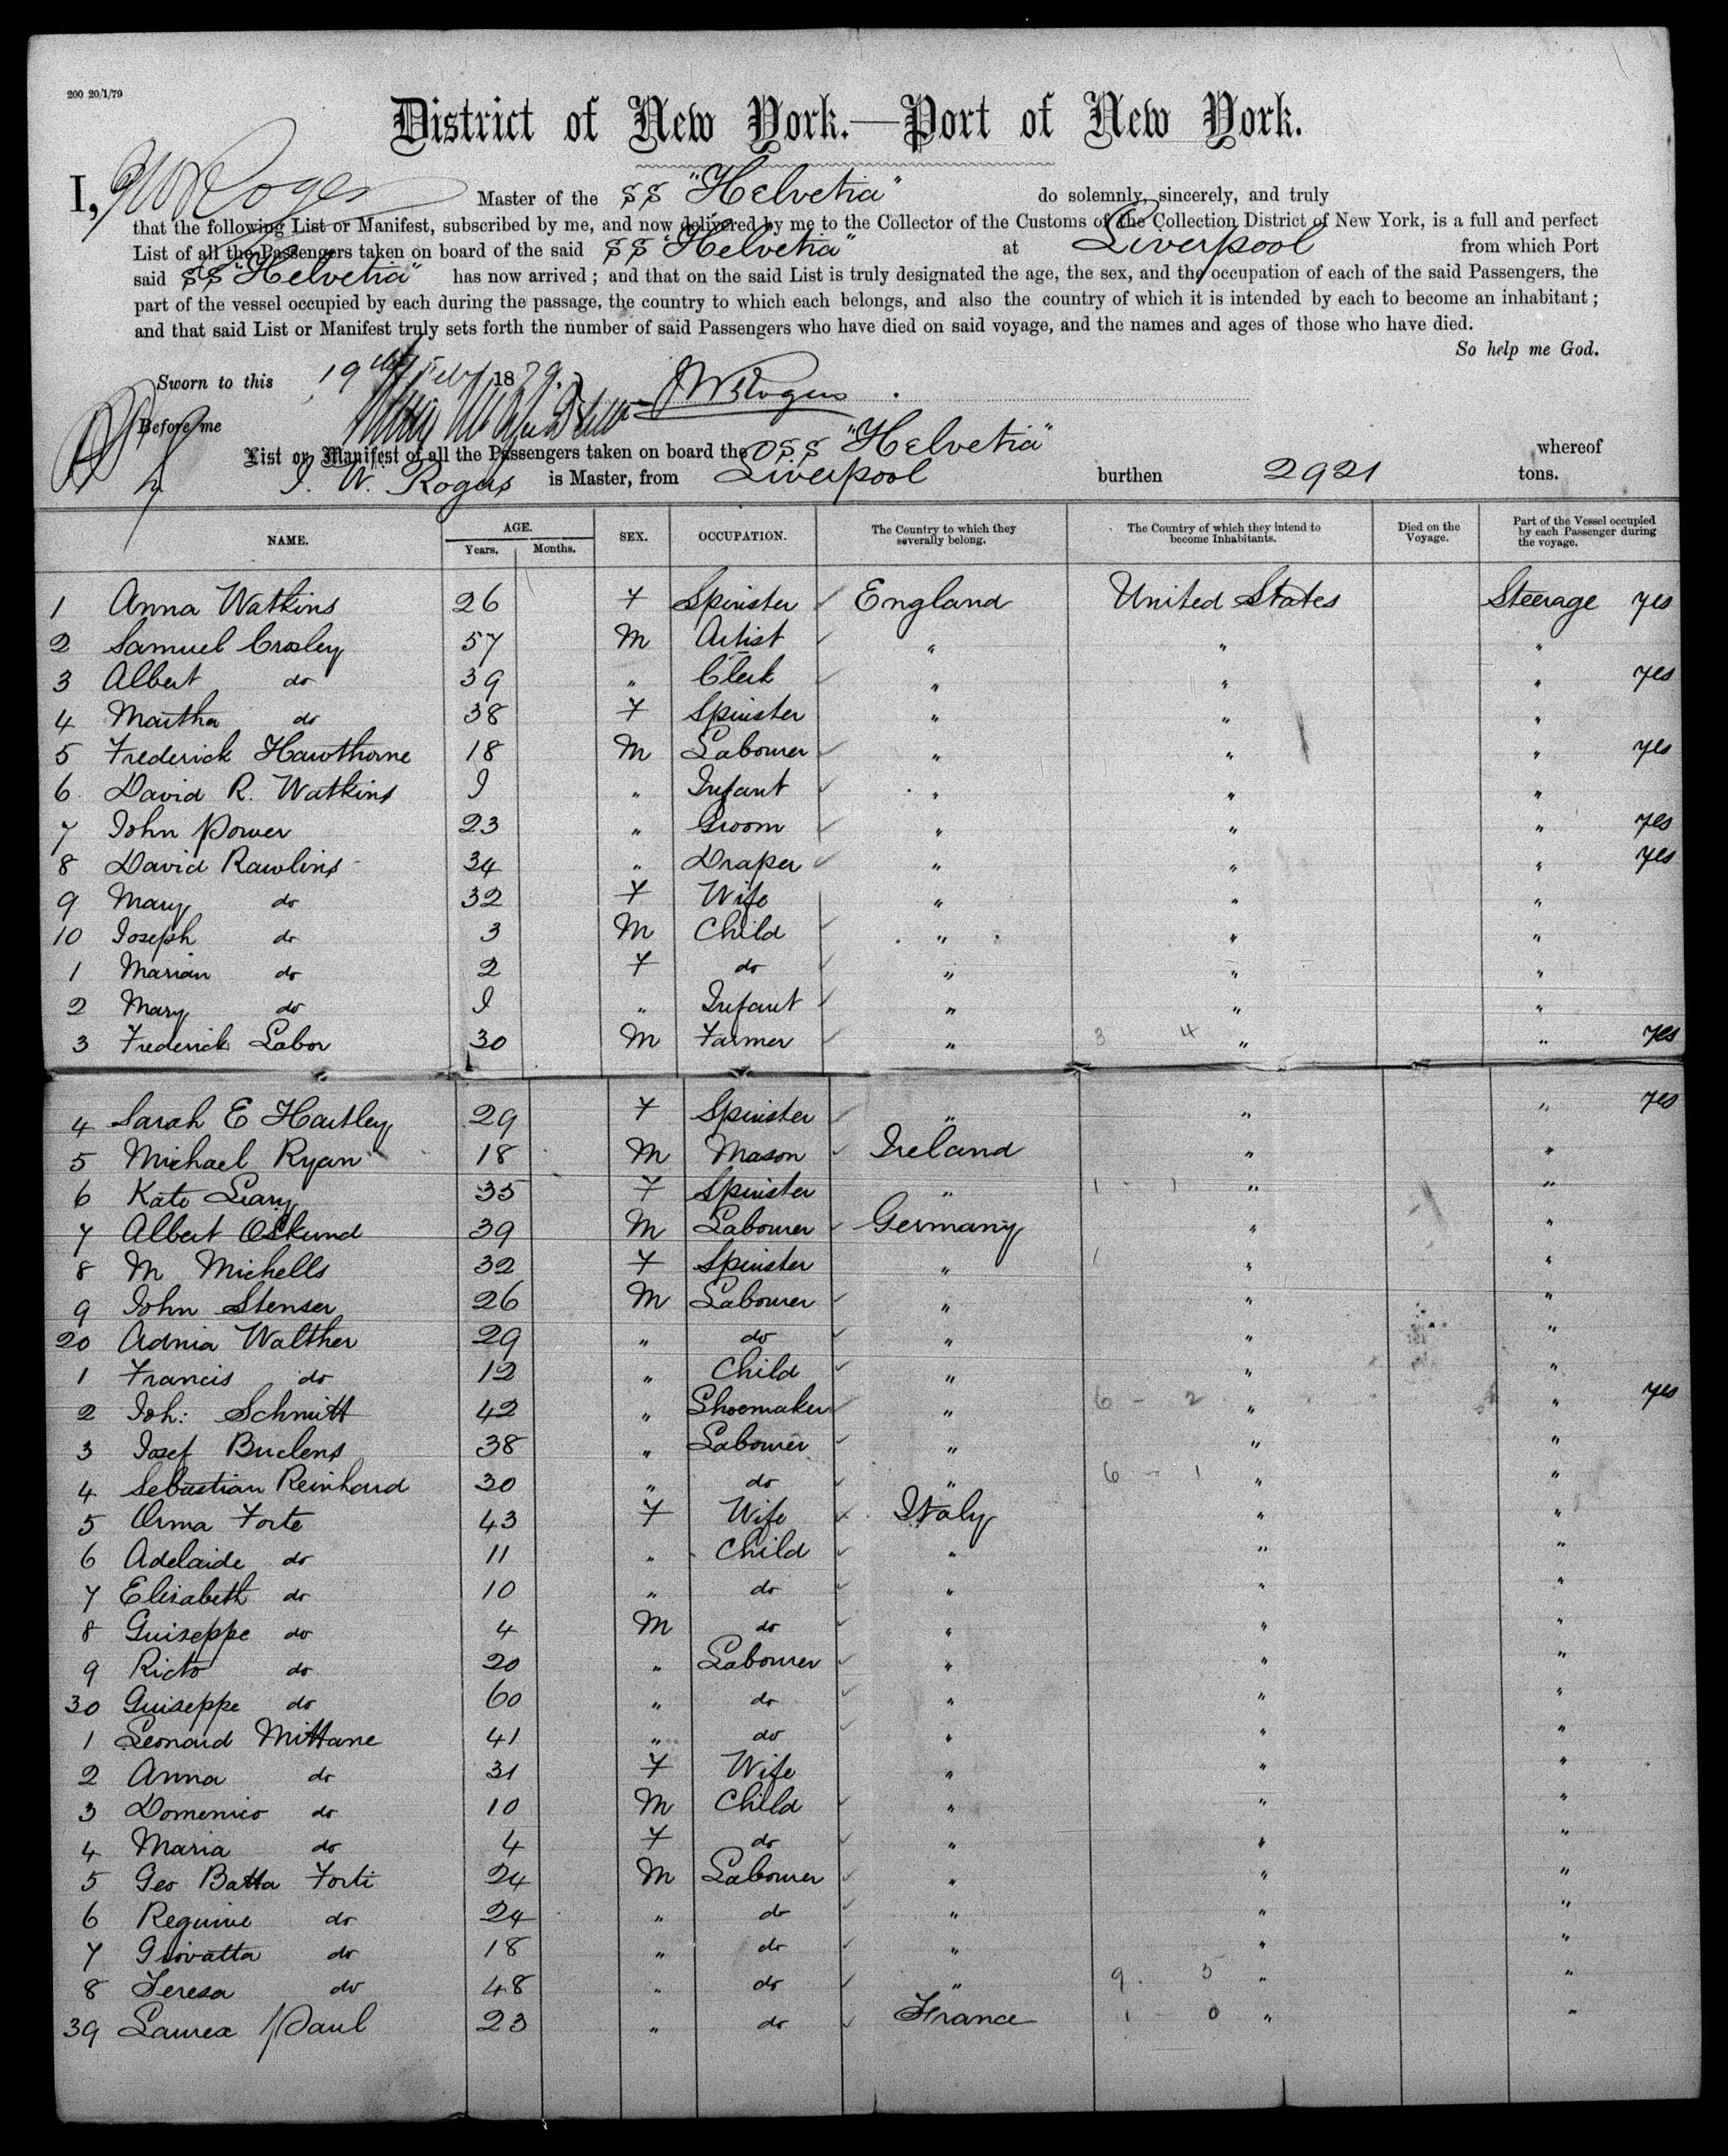 200 20/1/79
District of New York.—Port of New York.
I, Master of the SS "Helvetia" do solemnly, sincerely, and truly
that the following List or Manifest, subscribed by me, and now delivered by me to the Collector of the Customs of the Collection District of New York, is a full and perfect
List of all the Passengers taken on board of the said SS "Helvetia" at Liverpool from which Port
said SS "Helvetia" has now arrived ; and that on the said List is truly designated the age, the sex, and the occupation of each of the said Passengers, the
part of the vessel occupied by each during the passage, the country to which each belongs, and also the country of which it is intended by each to become an inhabitant ;
and that said List or Manifest truly sets forth the number of said Passengers who have died on said voyage, and the names and ages of those who have died.
So help me God.
Sworn to this 19th Feby 1879. JW Rogers
Before me
List or Manifest of all the Passengers taken on board the SS "Helvetia" whereof
J. W. Rogers is Master, from Liverpool burthen 2921 tons.
NAME. AGE. Years. Months. SEX. OCCUPATION. The Country to which they severally belong. The Country of which they intend to become Inhabitants. Died on the Voyage. Part of the Vessel occupied by each Passenger during the voyage.
1 Anna Watkins 26 F Spinster England United States Steerage yes
2 Samuel Crosley 57 M Artist " " "
3 Albert do 39 " Clerk " " " yes
4 Martha do 38 F Spinster " " "
5 Frederick Hawthorne 18 M Labourer " " " yes
6 David R. Watkins I " Infant " " "
7 John Power 23 " Groom " " " yes
8 David Rawlins 34 " Draper " " " yes
9 Mary do 32 F Wife " " "
10 Joseph do 3 M Child " " "
1 Marian do 2 F do " " "
2 Mary do I " Infant " " "
3 Frederick Labor 30 M Farmer " 3 4 " " yes
4 Sarah E Hartley 29 F Spinster " " " yes
5 Michael Ryan 18 M Mason Ireland " "
6 Kate Leary 35 F Spinster " 1 - 1 " "
7 Albert Oskund 39 M Labourer Germany " "
8 M Michells 32 F Spinster " 1 " "
9 John Stenser 26 M Labourer " " "
20 Adnia Walther 29 " do " " "
1 Francis do 12 " Child " " "
2 Joh: Schmitt 42 " Shoemaker " 6 - 2 " " yes
3 Josef Buclens 38 " Labourer " " "
4 Sebastian Reinhard 30 " do " 6 - 1 " "
5 Orma Forte 43 F Wife Italy " "
6 Adelaide do 11 " Child " " "
7 Elisabeth do 10 " do " " "
8 Guiseppe do 4 M do " " "
9 Ricto do 20 " Labourer " " "
30 Guiseppe do 60 " do " " "
1 Leonard Mittane 41 " do " " "
2 Anna do 31 F Wife " " "
3 Domenico do 10 M Child " " "
4 Maria do 4 F do " " "
5 Geo Batta Forti 24 M Labourer " " "
6 Reguine do 24 " do " " "
7 Giovatta do 18 " do " " "
8 Teresa do 48 " do " 9 . 5 " "
39 Laurex Paul 23 " do France 1 - 0 " "